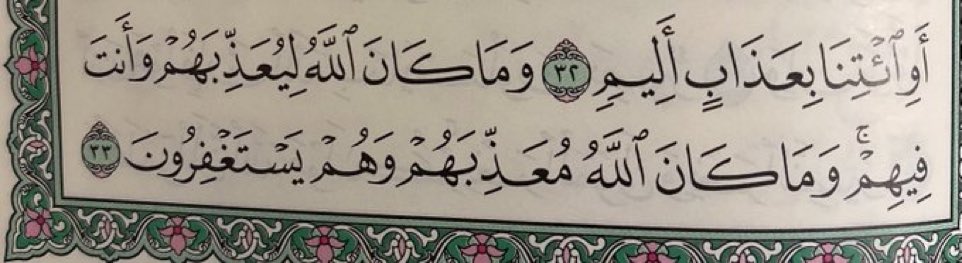 أَوِ ٱئۡتِنَا بِعَذَابٍ أَلِيمٖ ٣٢ وَمَا كَانَ ٱللَّهُ لِيُعَذِّبَهُمۡ وَأَنتَ
فِيهِمۡۚ وَمَا كَانَ ٱللَّهُ مُعَذِّبَهُمۡ وَهُمۡ يَسۡتَغۡفِرُونَ ٣٣